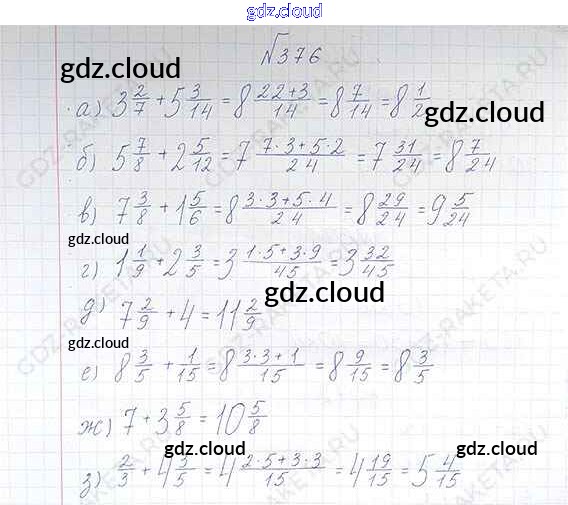 gdz.cloud
№376
gdz.cloud
а) 3 2/7 + 5 3/14 = 8 (22+3)/14 = 8 7/14 = 8 1/2
gdz.cloud
б) 5 7/8 + 2 5/12 = 7 (7·3+5·2)/24 = 7 31/24 = 8 7/24
в) 7 3/8 + 1 5/6 = 8 (3·3+5·4)/24 = 8 29/24 = 9 5/24
gdz.cloud
gdz.cloud
г) 1 1/9 + 2 3/5 = 3 (1·5+3·9)/45 = 3 32/45
gdz.cloud
д) 7 2/9 + 4 = 11 2/9
gdz.cloud
е) 8 3/5 + 1/15 = 8 (3·3+1)/15 = 8 9/15 = 8 3/5
ж) 7 + 3 5/8 = 10 5/8
gdz.cloud
gdz.cloud
з) 2/3 + 4 3/5 = 4 (2·5+3·3)/15 = 4 19/15 = 5 4/15
GDZ-RAKETA.RU